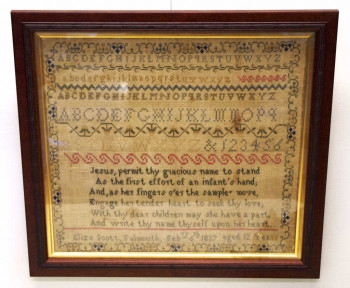 ABCDEFGHIJKLMNOPQRSTUVWXYZ
abcdefghijklmnopqrstuvwxyz
ABCDEFGHIJKLMNOPQRSTUVWXYZ
ABCDEFGHIJKLMNOPQ
& 123456
Jesus, permit thy gracious name to stand
As the first effort of an infant's hand;
And, as her fingers o'er the sampler move,
Engage her tender heart to seek thy love;
With thy dear children may she have a part,
And write thy name thyself upon her heart.
Eliza Scott, Falmouth, Feb 1837 aged 12 years